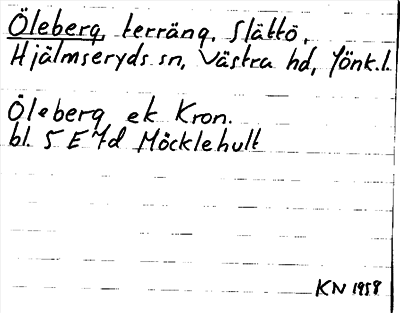 Öleberg, terräng, Slättö,
Hjälmseryds sn, Västra hd, Jönk.l.
Öleberg ek Kron.
bl. 5 E 7d Möcklehult
KN 1958